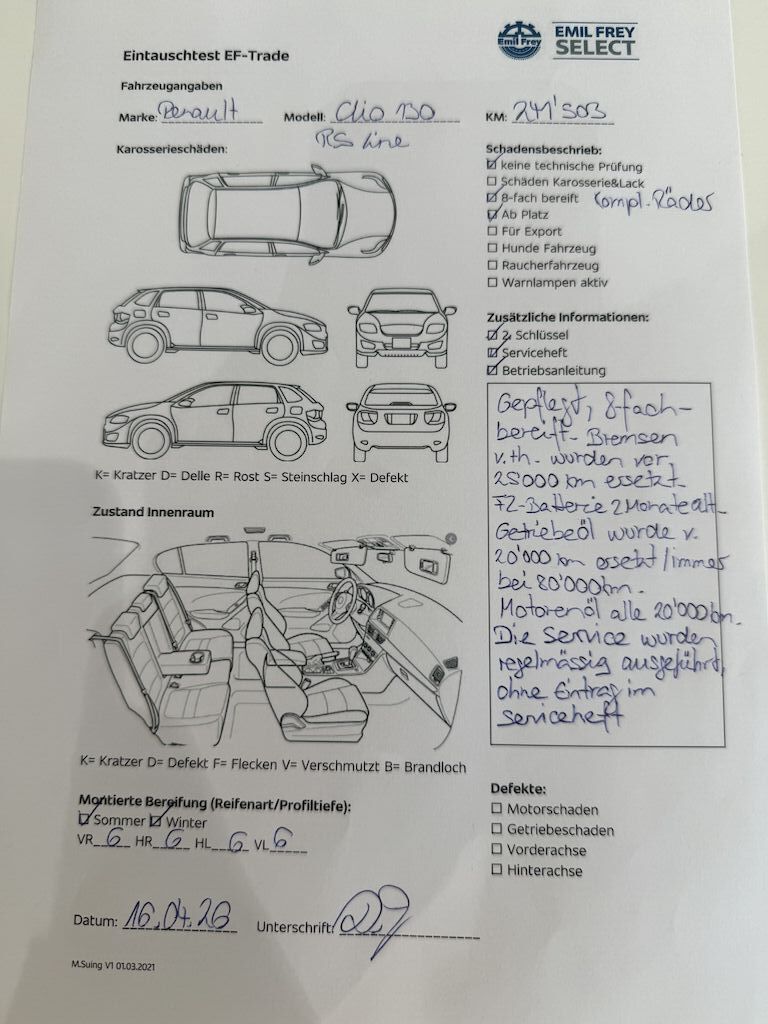 Emil Frey
EMIL FREY
SELECT
Eintauschtest EF-Trade
Fahrzeugangaben
Marke: Renault Modell: Clio 130 KM: 241'503
RS line
Karosserieschäden:
Schadensbeschrieb:
keine technische Prüfung
Schäden Karosserie&Lack
8-fach bereift Kompl. Räder
Ab Platz
Für Export
Hunde Fahrzeug
Raucherfahrzeug
Warnlampen aktiv
Zusätzliche Informationen:
2. Schlüssel
Serviceheft
Betriebsanleitung
Gepflegt, 8fach-
bereift. Bremsen
v.+h. wurden vor
25000 km ersetzt.
FZ-Batterie 2 Monate alt.
Getriebeöl wurde v.
20'000 km ersetzt/immer
bei 80'000km.
Motorenöl alle 20'000km.
Die Service wurden
regelmässig ausgeführt,
ohne Eintrag im
Serviceheft
K= Kratzer D= Delle R= Rost S= Steinschlag X= Defekt
Zustand Innenraum
K= Kratzer D= Defekt F= Flecken V= Verschmutzt B= Brandloch
Montierte Bereifung (Reifenart/Profiltiefe):
Sommer Winter
VR 6 HR 6 HL 6 VL 6
Defekte:
Motorschaden
Getriebeschaden
Vorderachse
Hinterachse
Datum: 16.04.26 Unterschrift:
M.Suing V1 01.03.2021